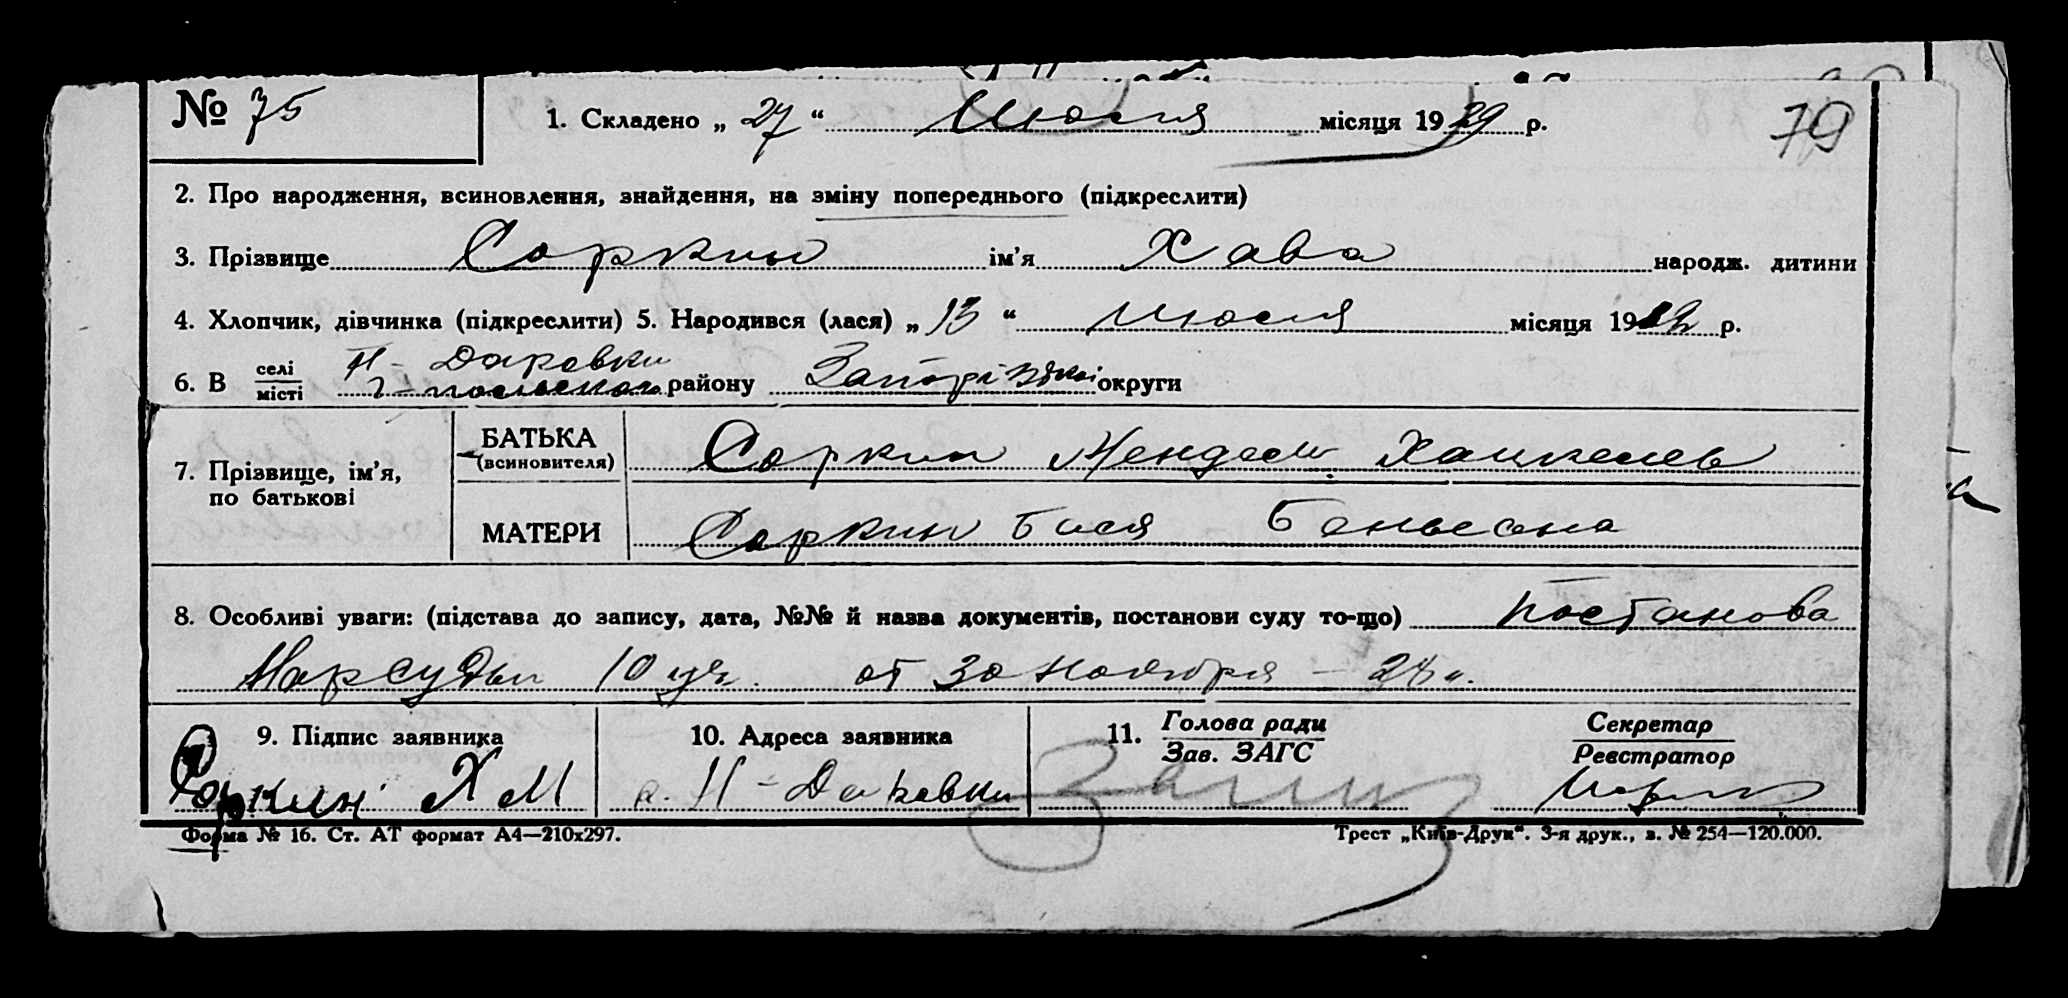 № 75
1. Складено „ 27 “ Июля місяця 1929 р.
79
2. Про народження, всиновлення, знайдення, на зміну попереднього (підкреслити)
3. Прізвище Соркин ім'я Хава народж. дитини
4. Хлопчик, дівчинка (підкреслити) 5. Народився (лася) „ 13 “ июля місяця 1912 р.
6. В селі місті Н-Даковки района Запорізької округи
7. Прізвище, ім'я, по батькові
БАТЬКА (всиновителя) Соркин Мендель Хацкелев
МАТЕРИ Соркин Бася
8. Особливі уваги: (підстава до запису, дата, №№ й назва документів, постанови суду то-що) Постанова
Нарсуды 10 уч. от 30 Ноября -
9. Підпис заявника
Соркин Х М
10. Адреса заявника
с. Н-Даковки
11. Голова ради
Зав. ЗАГС
Секретар
Реєстратор
Форма № 16. Ст. АТ формат А4—210х297.
Трест „Київ-Друк“. 3-я друк., з. № 254—120.000.